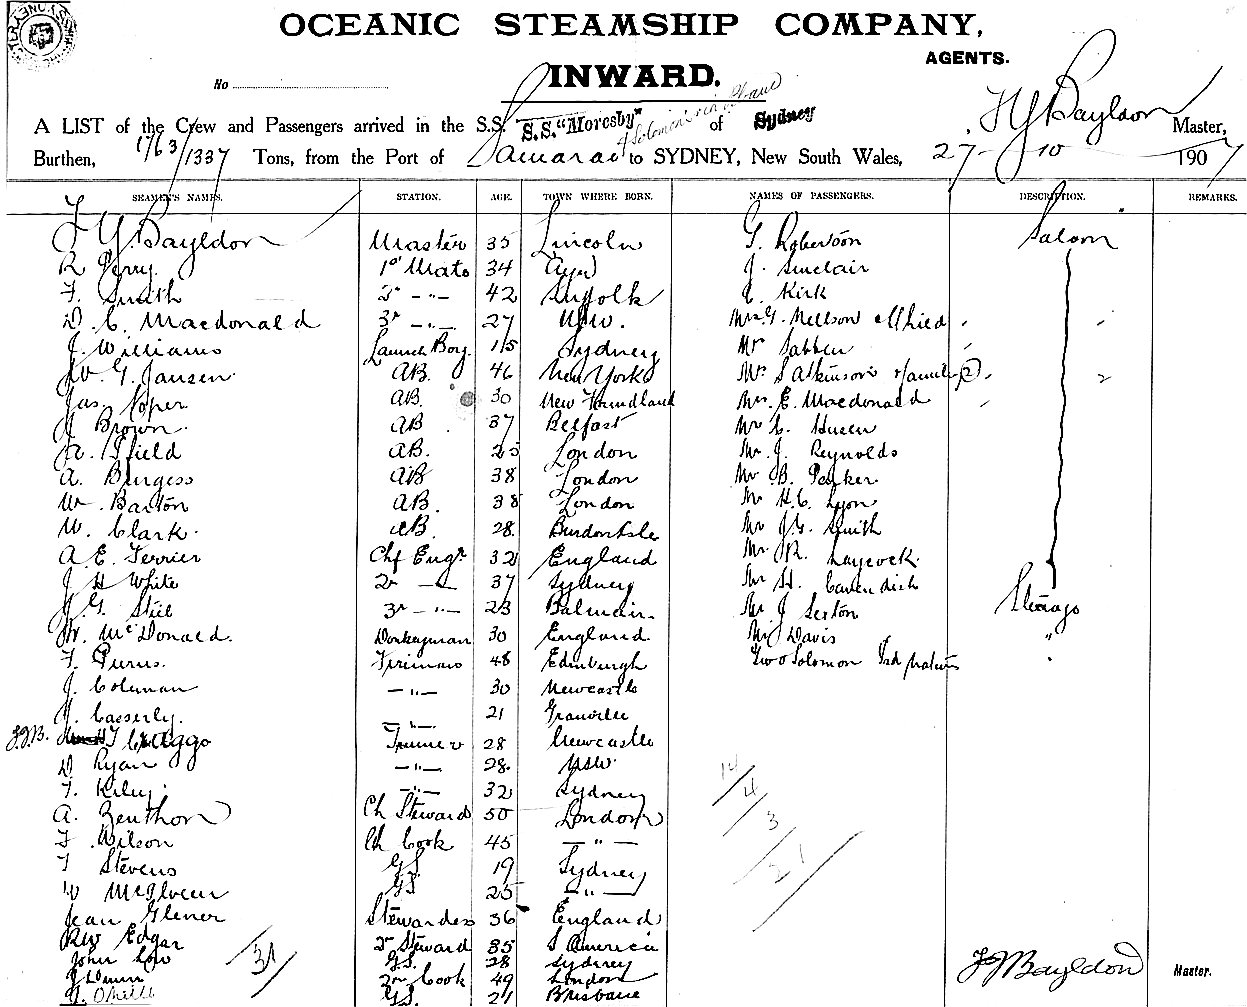 OCEANIC STEAMSHIP COMPANY,
AGENTS.
INWARD.
No
A LIST of the Crew and Passengers arrived in the S.S. S.S. "Moresby" of Sydney F J Bayldon Master,
Burthen, 1763/1337 Tons, from the Port of Samarai to SYDNEY, New South Wales, 27 - 10 1907
SEAMEN'S NAMES. STATION. AGE. TOWN WHERE BORN. NAMES OF PASSENGERS. DESCRIPTION. REMARKS.
F J Bayldon Master 35 Lincoln G. Robertson Saloon
R Perry 1st Mate 34 Ayr J. Sinclair
F. Smith 2r -"- 42 Suffolk Kirk
D. C. Macdonald 3r -"- 27 NSW. Mrs G. Nellson & Child
J. Williams Launch Boy. 15 Sydney Mr Sabben
W. G. Jansen AB. 46 New York Mrs S Atkinson & family (2) 2
Jas. Roper AB. 30 New Foundland Mrs. E. Macdonald
J Brown AB 37 Belfast Mr C. Hueen
A. Ifield AB. 25 London Mr. J. Reynolds
A. Burgess AB 38 London Mr B. Parker
W. Barton AB. 38 London Mr H.C. Lyon
W. Clark AB 28. Burdon Isle Mr J.G. Smith
A. E. Terrier Chf Engr. 32 England Mr. R. Laycock.
J H White 2r -"- 37 Sydney Mr H. Cavendish
J. G. Stil 3r -"- 23 Balmain Mr J Sexton Steerage
W. McDonald. Donkeyman 30 England Mr Davis "
F. Purvis. Fireman 48 Edinburgh Two Solomon Isd natives "
J. Coleman -"- 30 Newcastle
J. Casserly. -"- 21 Granville
FJB. T Craggo Trimmer 28 Newcastle
D Ryan -"- 28. NSW.
F. Kiley. -"- 32 Sydney
A. Zeuthon Ch Steward 50 London
F. Wilson Ch Cook 45 -"-
F Stevens GS 19 Sydney
W McIlveen GS 25 -"-
Jean Glener Stewardess 36 England
RW Edgar 2r Steward 35 S America
John Low GS. 28 Sydney
J Dunn 2nd Cook 49 London
O'Neill GS. 21 Brisbane
14
4
3
21
31
FJBayldon Master.